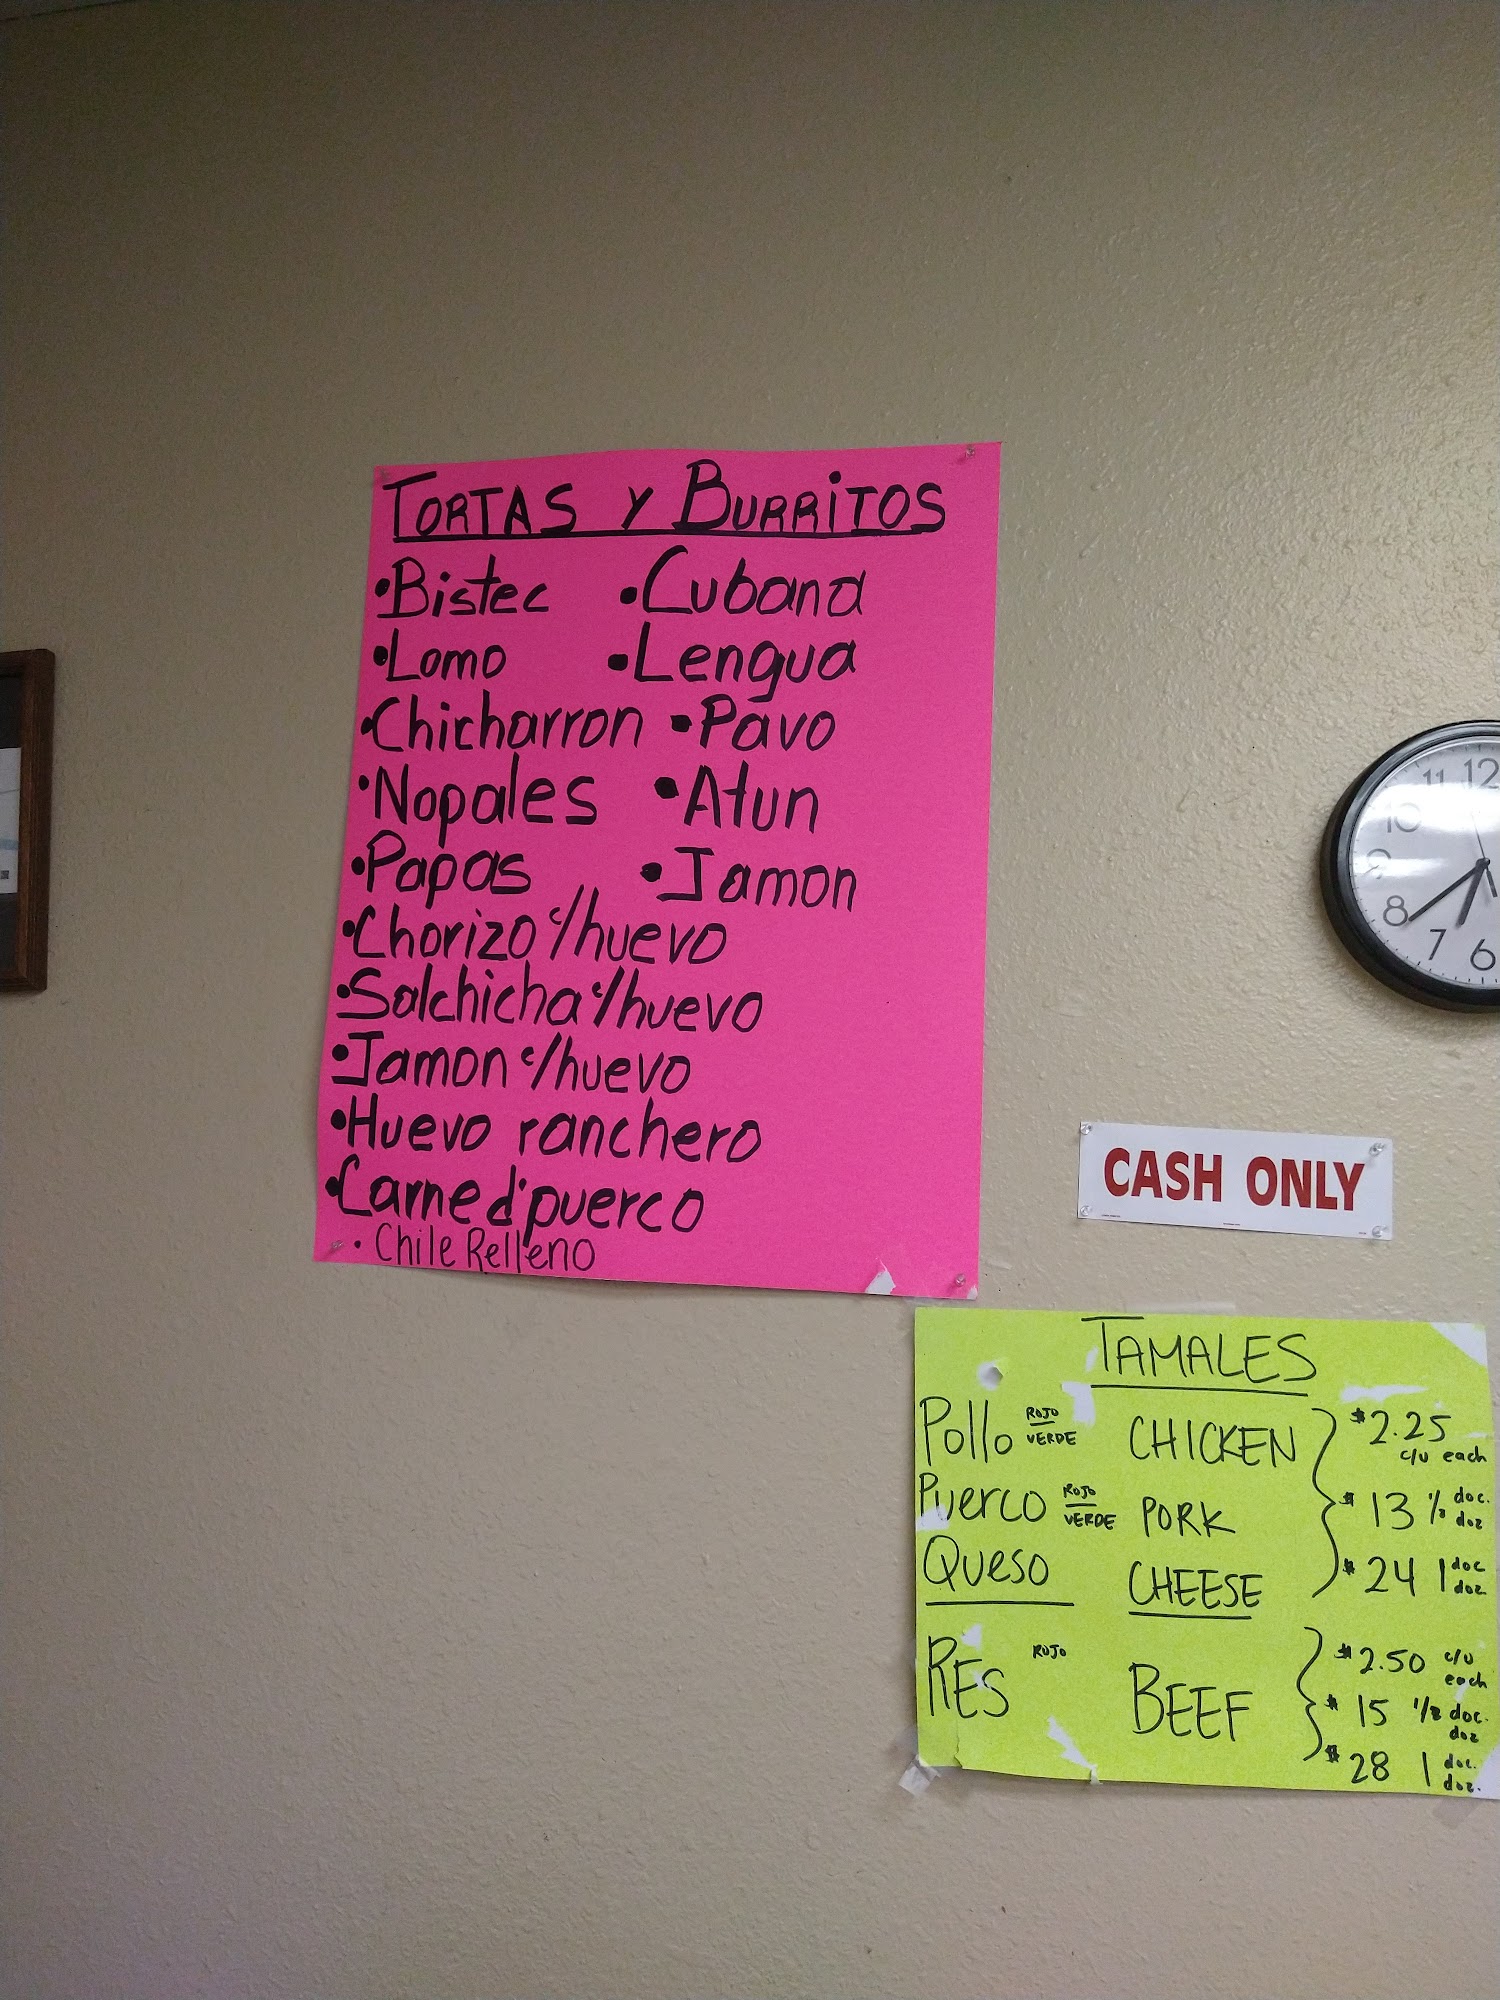 TORTAS Y BURRITOS
•Bistec •Cubana
•Lomo •Lengua
•Chicharron •Pavo
•Nopales •Atun
•Papas •Jamon
•Chorizo c/huevo
•Salchicha c/huevo
•Jamon c/huevo
•Huevo ranchero
•Carne d'puerco
• Chile Relleno
11 12
10
9
8
7 6
CASH ONLY
TAMALES
Pollo ROJO VERDE CHICKEN $2.25 c/u each
Puerco ROJO VERDE PORK $13 1/2 doc. doz
Queso CHEESE $24 1 doc doz.
RES ROJO BEEF $2.50 c/u each
$15 1/2 doc. doz
$28 1 doc. doz.